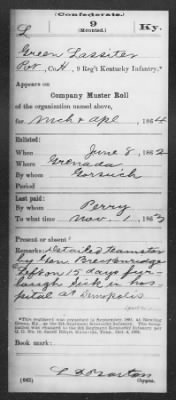 (Confederate.)
L 9 Ky.
(Mounted.)
Green Lassiter
Pvt, Co. H, 9 Reg't Kentucky Infantry.*
Appears on
Company Muster Roll
of the organization named above,
for Mch & Apl, 1864
Enlisted:
When June 8, 1862
Where Grenada
By whom Gorsuch
Period
Last paid:
By whom Perry
To what time Nov. 1, 1863
Present or absent?
Remarks: Detailed Teamster
by Gen Breckinridge
Left on 15 days fur-
lough sick in hos-
pital at Demopolis
Book mark:
(662) Copyist.